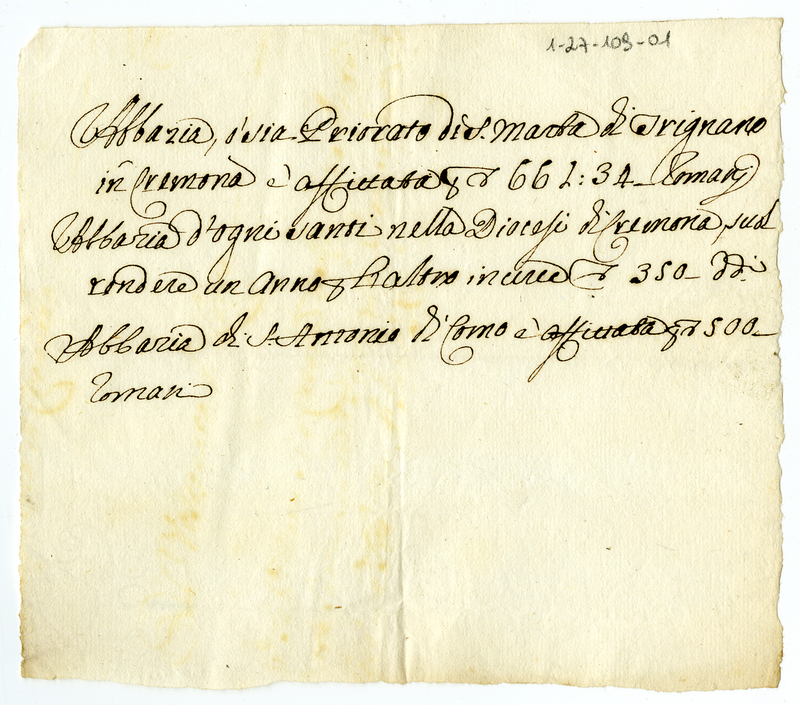 1-27-109-01
Abbazia, ò sia Priorato di S. Marta di Trignano
in Cremona è affittata p ∇ 661:34 Romani
Abbazia d'ogni santi nella Diocesi di Cremona, suol
rendere un Anno p l'altro in circa ∇ 350 dd.i
Abbazia di S. Antonio di Como è affittata p ∇ 500
Romani